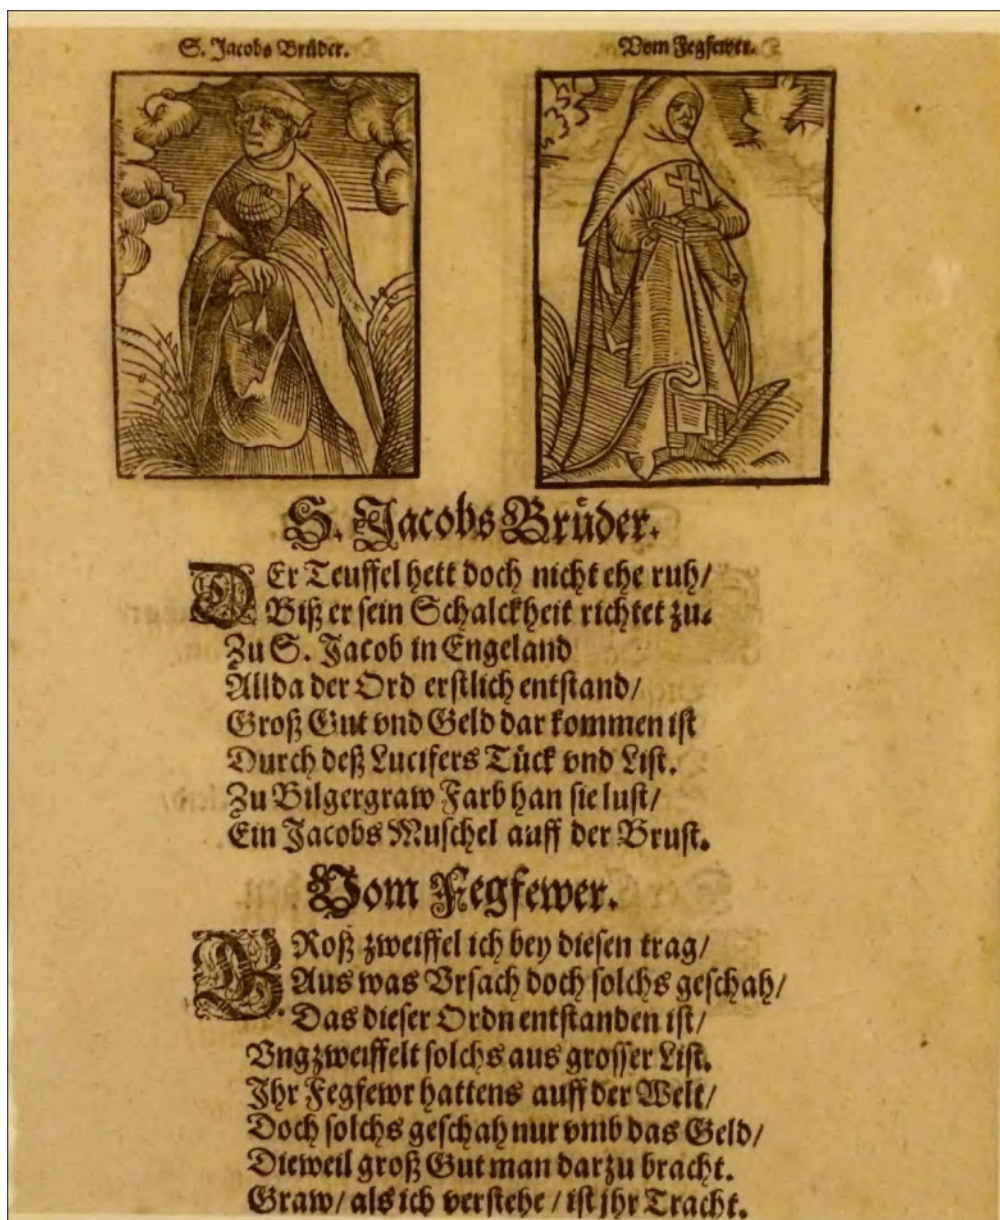 S. Jacobs Brüder.
Vom Fegfewer.
S. Jacobs Brüder.
DEr Teuffel hett doch nicht ehe ruh/
Biß er sein Schalckheit richtet zu.
Zu S. Jacob in Engeland
Allda der Ord erstlich entstand/
Groß Gut vnd Geld dar kommen ist
Durch deß Lucifers Tück vnd List.
Zu Bilgergraw Farb han sie lust/
Ein Jacobs Muschel auff der Brust.
Vom Fegfewer.
GRoß zweiffel ich bey diesen trag/
Aus was Vrsach doch solchs geschah/
Das dieser Ordn entstanden ist/
Vngzweiffelt solchs aus grosser List.
Ihr Fegfewr hattens auff der Welt/
Doch solchs geschah nur vmb das Geld/
Dieweil groß Gut man darzu bracht.
Graw/ als ich verstehe/ ist jhr Tracht.